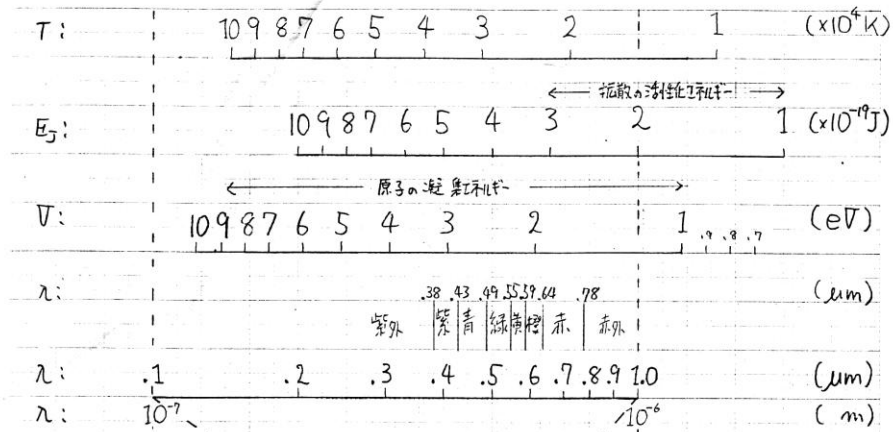 T: 10 9 8 7 6 5 4 3 2 1 (×10⁴K)
拡散の活性化エネルギー
E_J: 10 9 8 7 6 5 4 3 2 1 (×10⁻¹⁹J)
原子の凝集エネルギー
V: 10 9 8 7 6 5 4 3 2 1 .9 .8 .7 (eV)
λ: .38 .43 .49 .55 .59 .64 .78 (μm)
紫外 紫 青 緑 黄 橙 赤 赤外
λ: .1 .2 .3 .4 .5 .6 .7 .8 .9 1.0 (μm)
λ: 10⁻⁷ 10⁻⁶ (m)